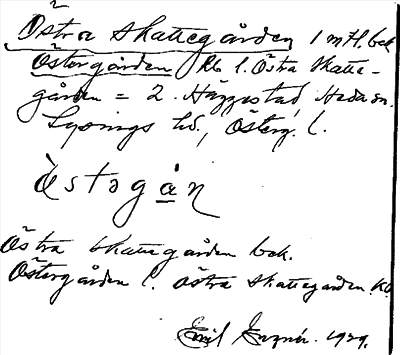 Östra Skattegården 1 mtl. bek
Östergården kb l. Östra Skatte-
gården = 2. Häggestad, Heda sn.
Lysings hd., Österg. l.
östərgán
Östra Skattegården bek.
Östergården l. Östra Skattegården. Kb.
Emil 1929.